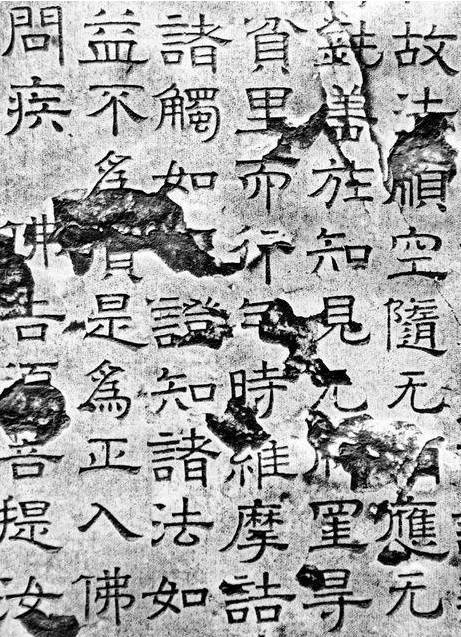 故法順空隨无相應无
銳善於知見无罣㝵
貧里而行乞時維摩詰
諸觸如證知諸法如
益不爲損是爲正入佛
問疾 佛告須菩提汝